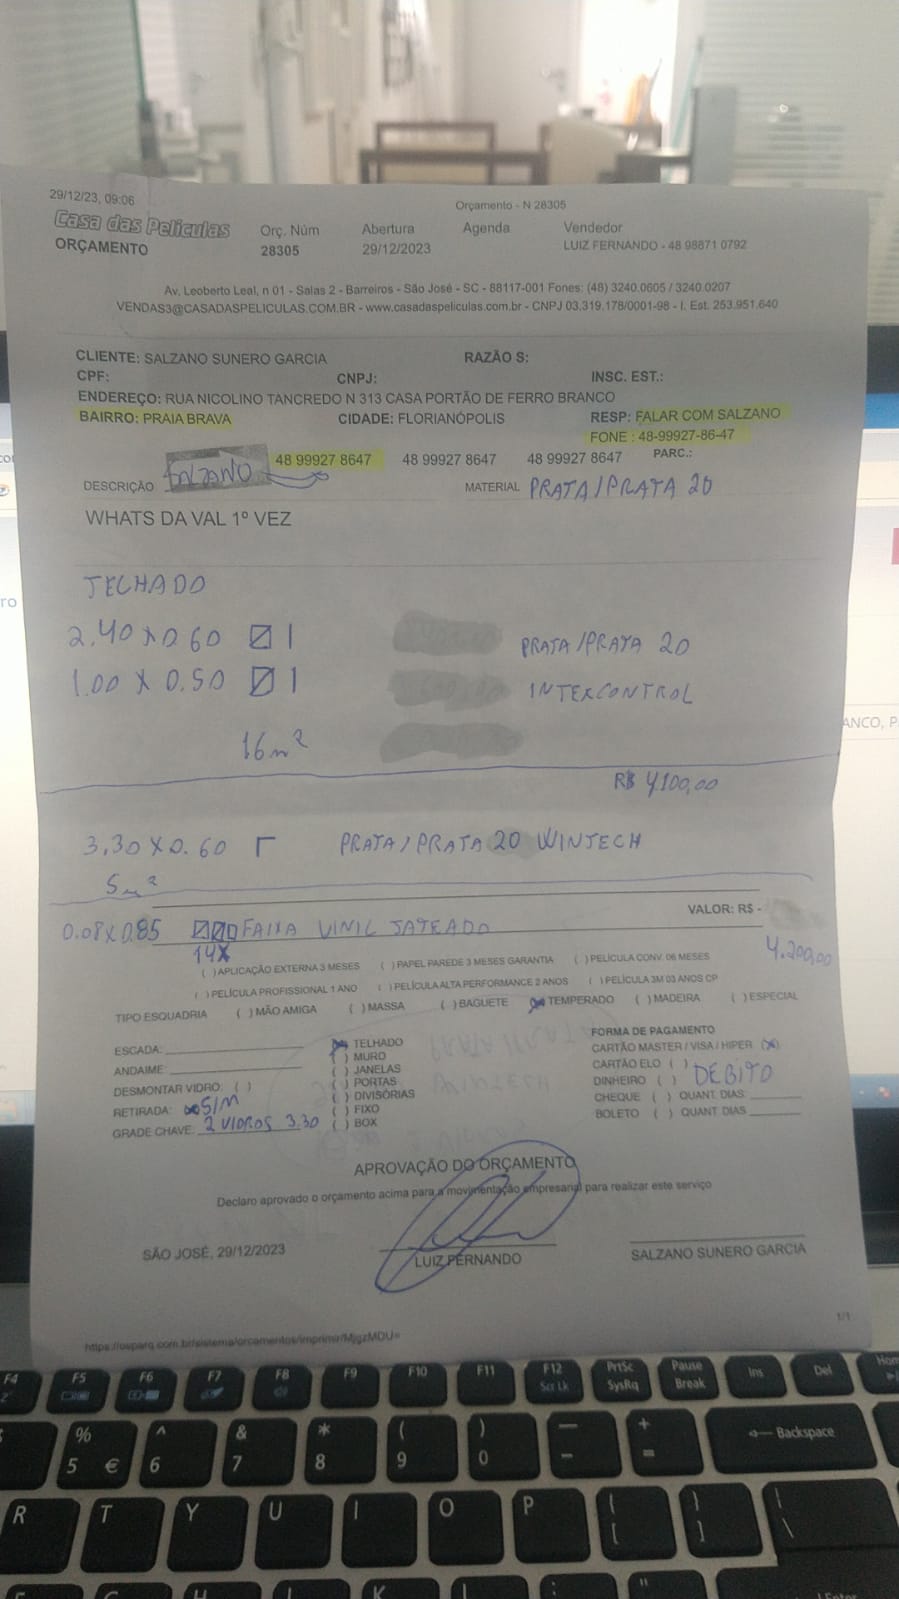 29/12/23, 09:06
Orçamento - N 28305
Casa das Películas
ORÇAMENTO
Orç. Núm
28305
Abertura
29/12/2023
Agenda
Vendedor
LUIZ FERNANDO - 48 98871 0792
Av. Leoberto Leal, n 01 - Salas 2 - Barreiros - São José - SC - 88117-001 Fones: (48) 3240.0605 / 3240.0207
VENDAS3@CASADASPELICULAS.COM.BR - www.casadaspeliculas.com.br - CNPJ 03.319.178/0001-98 - I. Est. 253.951.640
CLIENTE: SALZANO SUNERO GARCIA RAZÃO S:
CPF: CNPJ: INSC. EST.:
ENDEREÇO: RUA NICOLINO TANCREDO N 313 CASA PORTÃO DE FERRO BRANCO
BAIRRO: PRAIA BRAVA CIDADE: FLORIANÓPOLIS RESP: FALAR COM SALZANO
FONE : 48-99927-86-47
48 99927 8647 48 99927 8647 48 99927 8647 PARC.:
DESCRIÇÃO SALZANO MATERIAL PRATA/PRATA 20
WHATS DA VAL 1º VEZ
TELHADO
2.40 X 0.60 1 PRATA/PRATA 20
1.00 X 0.50 1 INTERCONTROL
16m²
R$ 4.100,00
3.30 X 0.60 PRATA/PRATA 20 WINTECH
5m²
VALOR: R$ -
0.08 X 0.85 FAIXA VINIL JATEADO
14X
4.200,00
( ) APLICAÇÃO EXTERNA 3 MESES ( ) PAPEL PAREDE 3 MESES GARANTIA ( ) PELÍCULA CONV. 06 MESES
( ) PELÍCULA PROFISSIONAL 1 ANO ( ) PELÍCULA ALTA PERFORMANCE 2 ANOS ( ) PELÍCULA 3M 03 ANOS CP
TIPO ESQUADRIA ( ) MÃO AMIGA ( ) MASSA ( ) BAGUETE (X) TEMPERADO ( ) MADEIRA ( ) ESPECIAL
ESCADA:
ANDAIME:
DESMONTAR VIDRO: ( )
RETIRADA: (X) SIM
GRADE CHAVE: 2 VIDROS 3.30
(X) TELHADO
( ) MURO
( ) JANELAS
( ) PORTAS
( ) DIVISÓRIAS
( ) FIXO
( ) BOX
FORMA DE PAGAMENTO
CARTÃO MASTER / VISA / HIPER (X)
CARTÃO ELO ( )
DINHEIRO ( ) DEBITO
CHEQUE ( ) QUANT. DIAS:
BOLETO ( ) QUANT DIAS
APROVAÇÃO DO ORÇAMENTO
Declaro aprovado o orçamento acima para a movimentação empresarial para realizar este serviço
SÃO JOSÉ, 29/12/2023
LUIZ FERNANDO
SALZANO SUNERO GARCIA
1/1
https://osparq.com.br/sistema/orcamentos/imprimir/MjgzMDU=
F4 F5 F6 F7 F8 F9 F10 F11 F12 Scr Lk PrtSc SysRq Pause Break Ins Del
% 5 € ^ 6 & 7 * 8 ( 9 ) 0 — - + = Backspace
R T Y U I O P { [ } ] | \